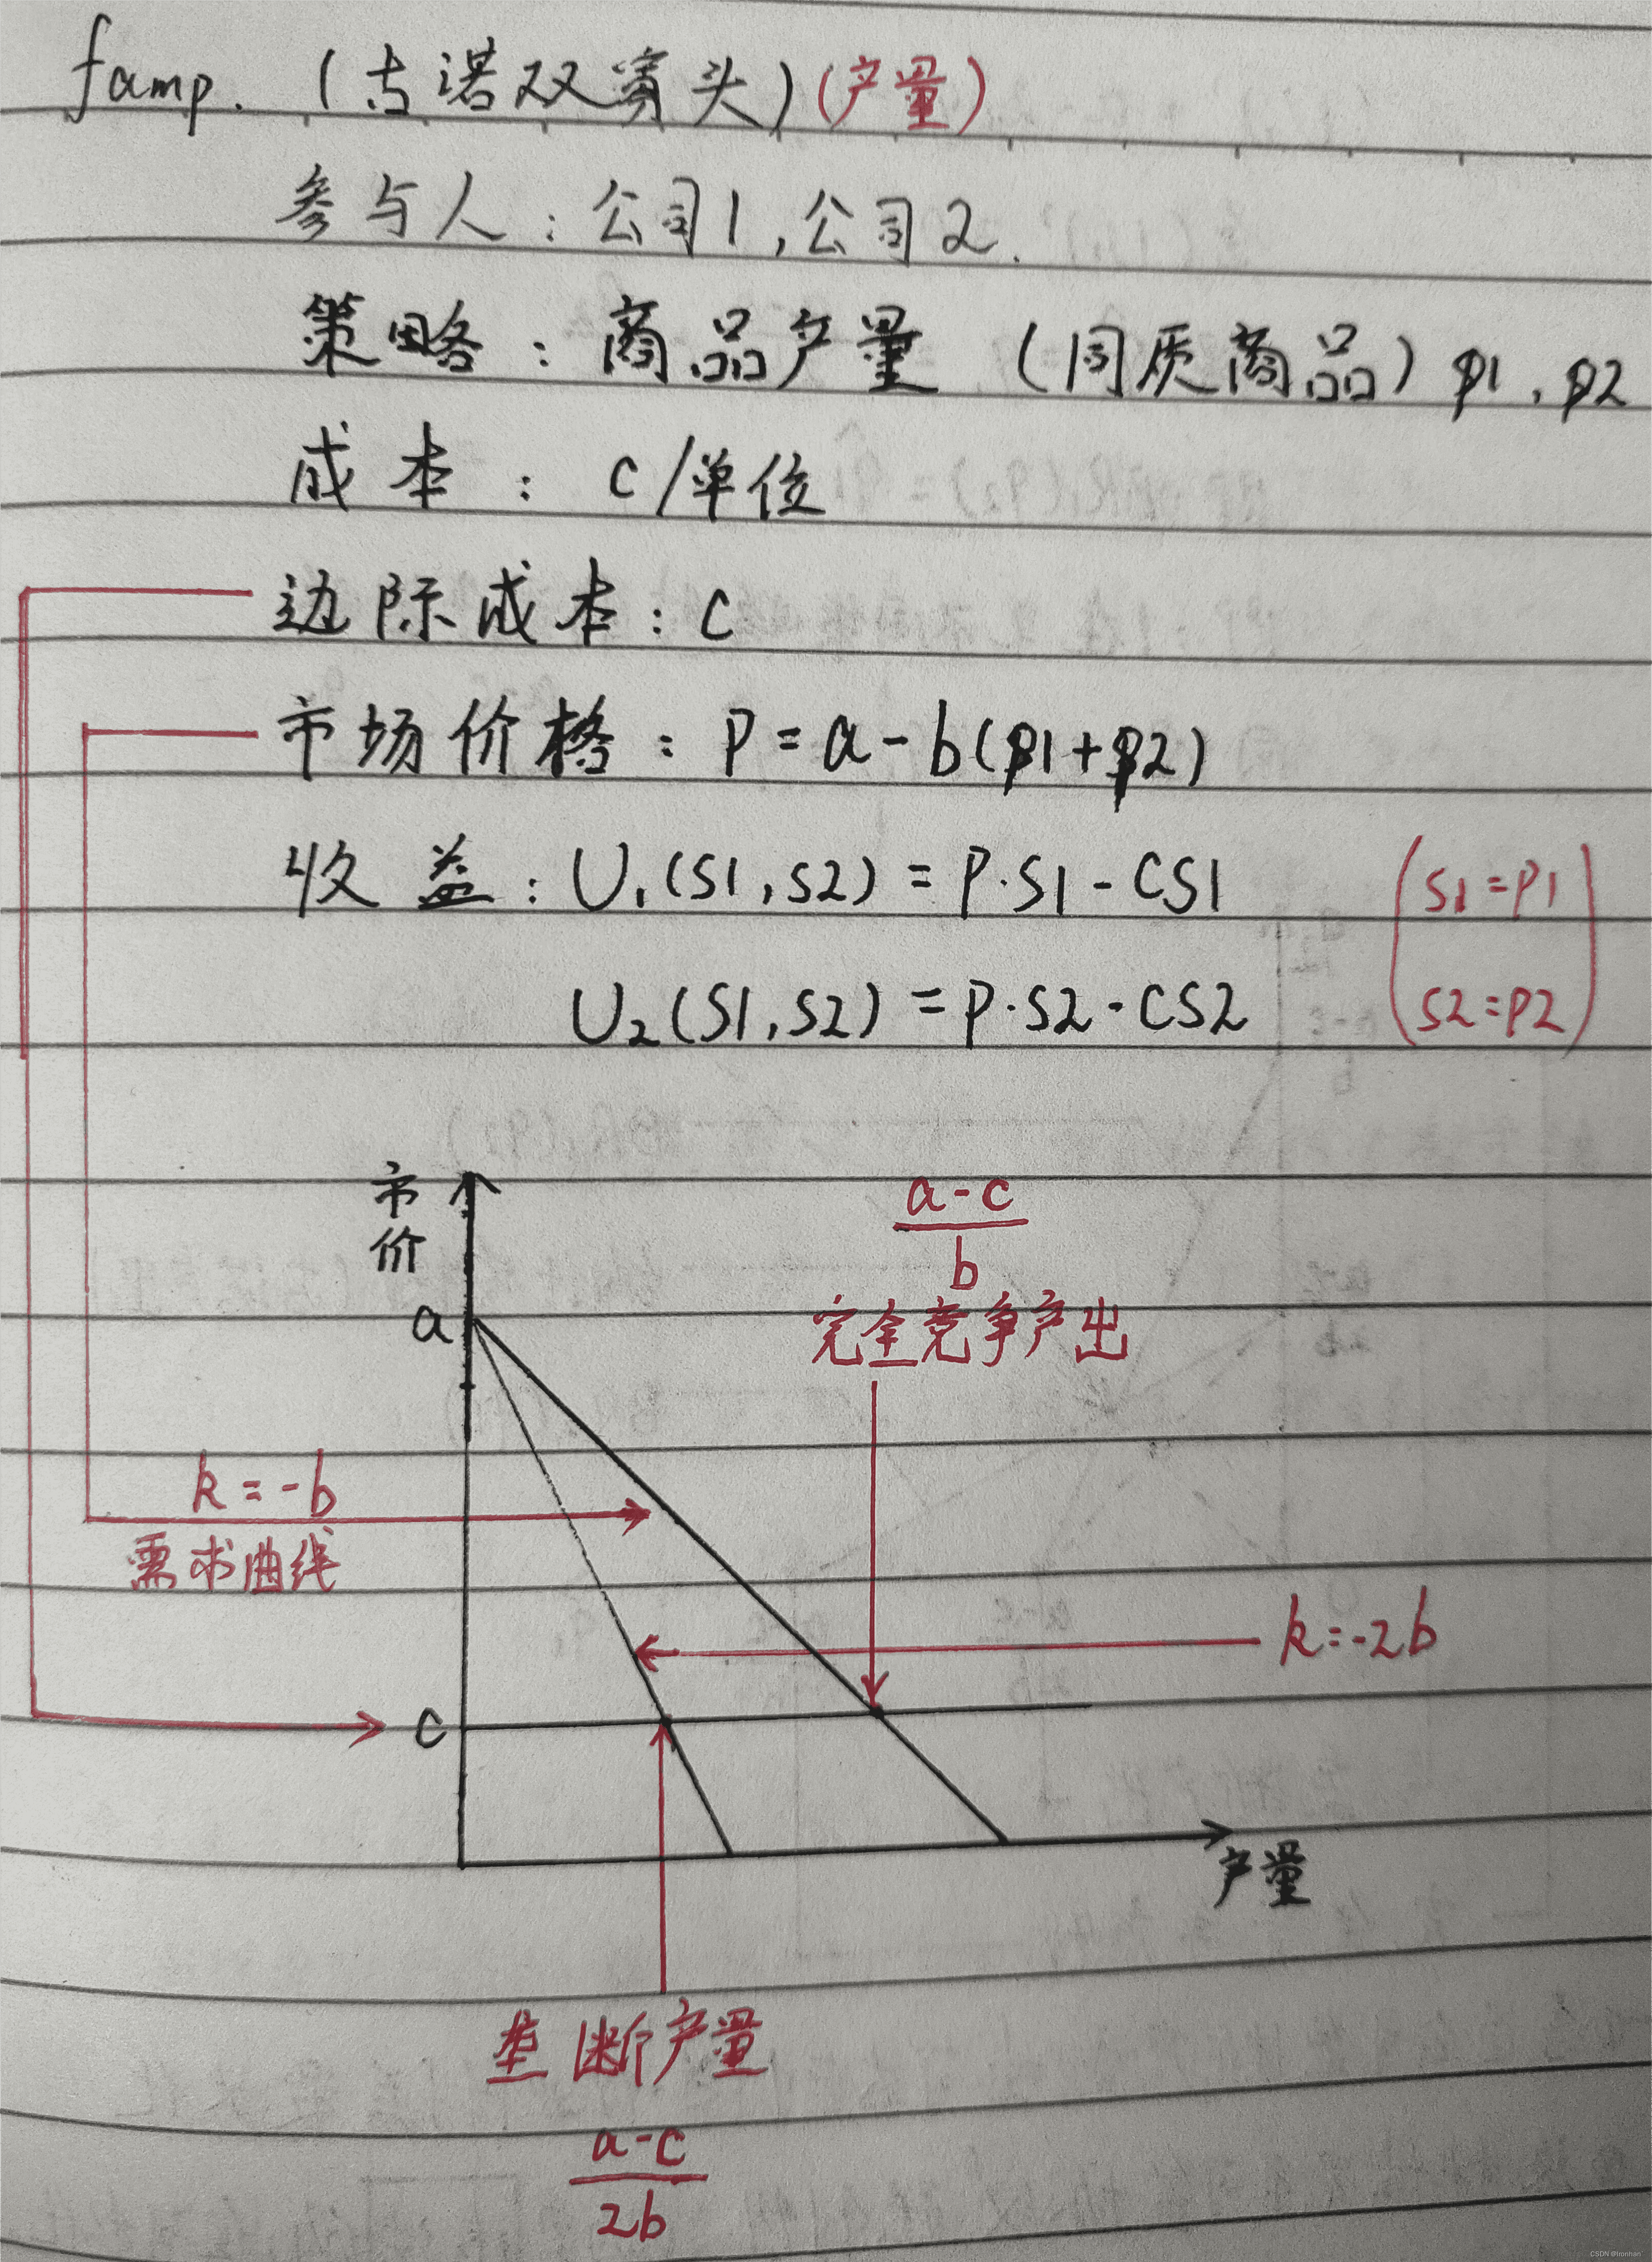 famp. (古诺双寡头)(产量)
参与人：公司1，公司2.
策略：商品产量 (同质商品) p1，p2
成本：c/单位
边际成本：c
市场价格：P=a-b(p1+p2)
收益：U₁(S1,S2)=P·S1-CS1
U₂(S1,S2)=P·S2-CS2
(S1=P1
S2=P2)
市价
a-c
b
完全竞争产出
a
k=-b
需求曲线
k=-2b
c
产量
垄断产量
a-c
2b
CSDN @Ironhan